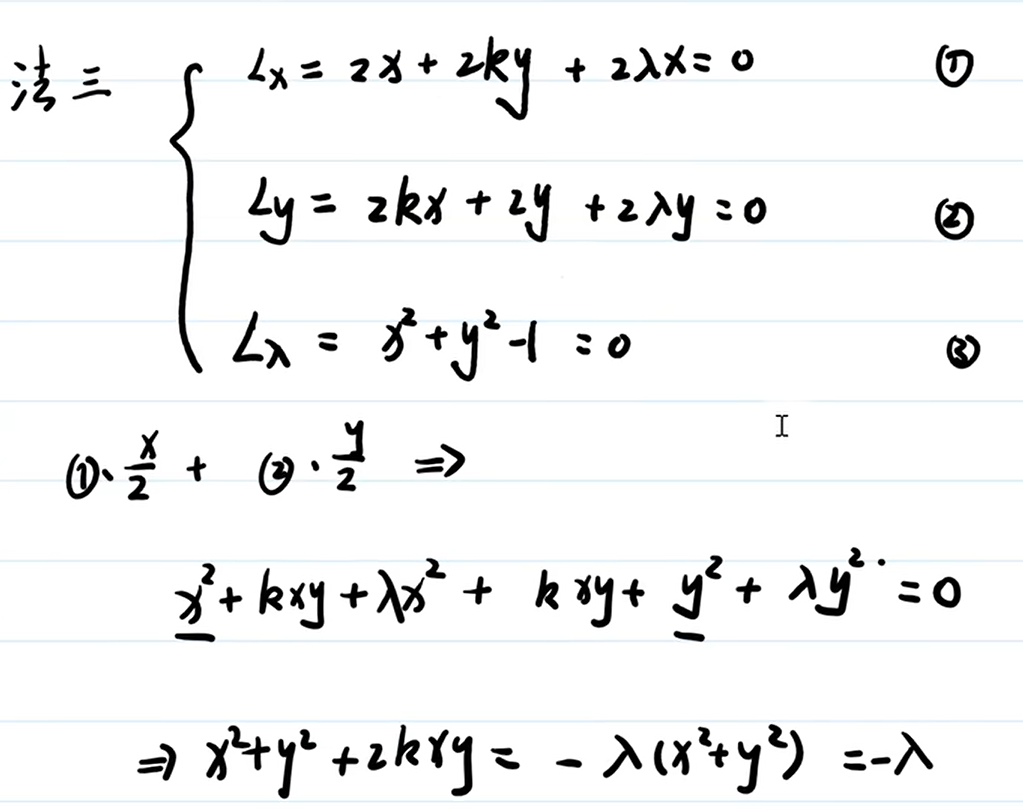 法三 { Lx = 2x + 2ky + 2λx = 0 ①
Ly = 2kx + 2y + 2λy = 0 ②
Lλ = x² + y² - 1 = 0 ③
①·x/2 + ②·y/2 ⇒
x² + kxy + λx² + kxy + y² + λy² = 0
⇒ x² + y² + 2kxy = -λ(x² + y²) = -λ